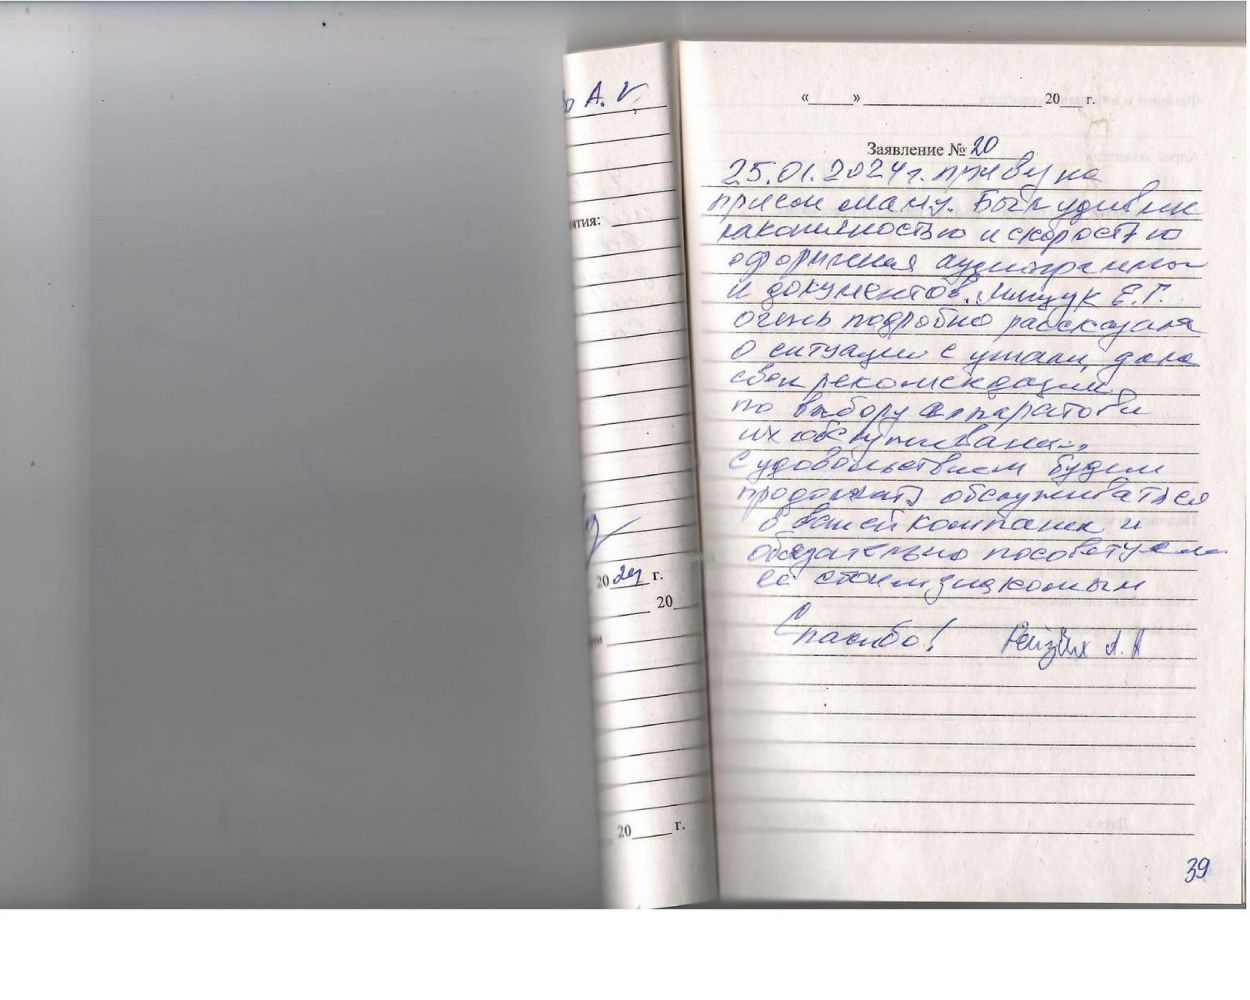 А. V.
ятия:
2024 г.
20
20 г.
« » 20 г.
Заявление № 20
25.01.2024 г. привёз на
прием маму. Был удивлен
лаконичностью и скоростью
оформления аудиограммы
и документов. Мищук Е.Г.
очень подробно рассказала
о ситуации с ушами, дала
свои рекомендации
по выбору аппаратов и
их обслуживанию,
с удовольствием будем
продолжать обслуживаться
в вашей компании и
обязательно посоветуем
её своим знакомым
Спасибо! А.А
39